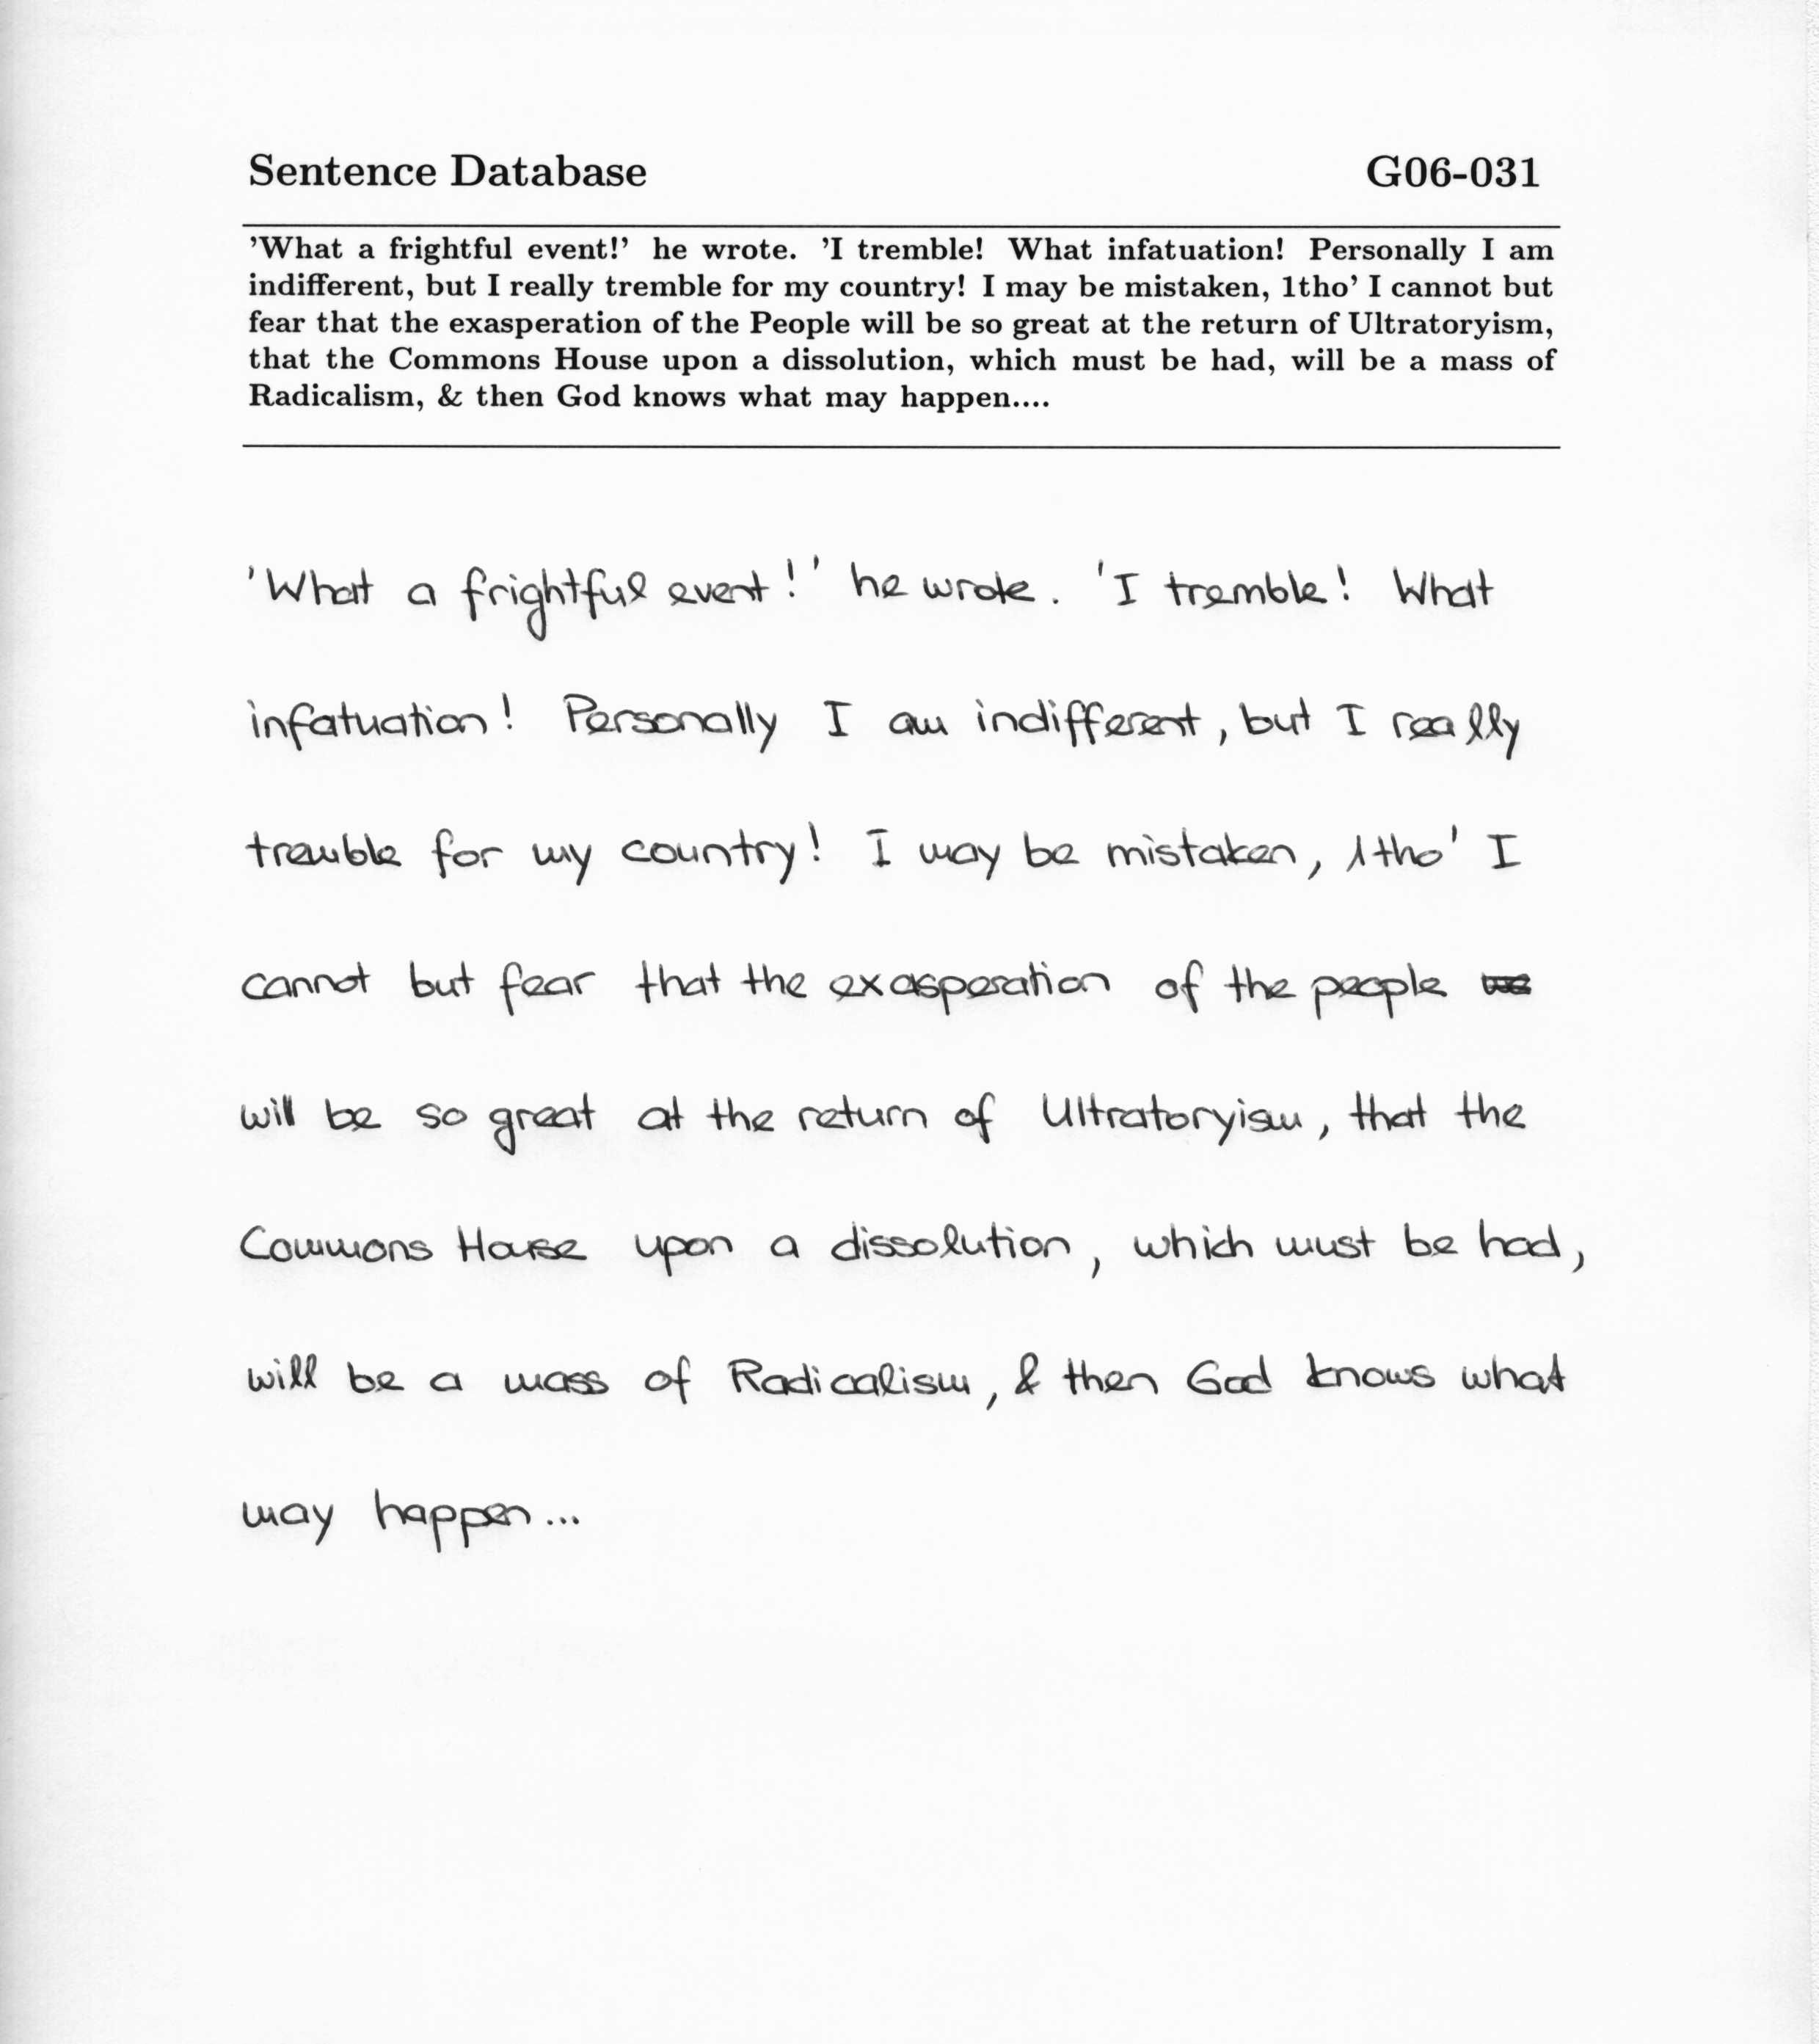 Sentence Database G06-031
'What a frightful event!' he wrote. 'I tremble! What infatuation! Personally I am
indifferent, but I really tremble for my country! I may be mistaken, 1tho' I cannot but
fear that the exasperation of the People will be so great at the return of Ultratoryism,
that the Commons House upon a dissolution, which must be had, will be a mass of
Radicalism, & then God knows what may happen....
'What a frightful event!' he wrote. 'I tremble! What
infatuation! Personally I am indifferent, but I really
tremble for my country! I may be mistaken, 1tho' I
cannot but fear that the exasperation of the people
will be so great at the return of Ultratoryism, that the
Commons House upon a dissolution, which must be had,
will be a mass of Radicalism, & then God knows what
may happen...